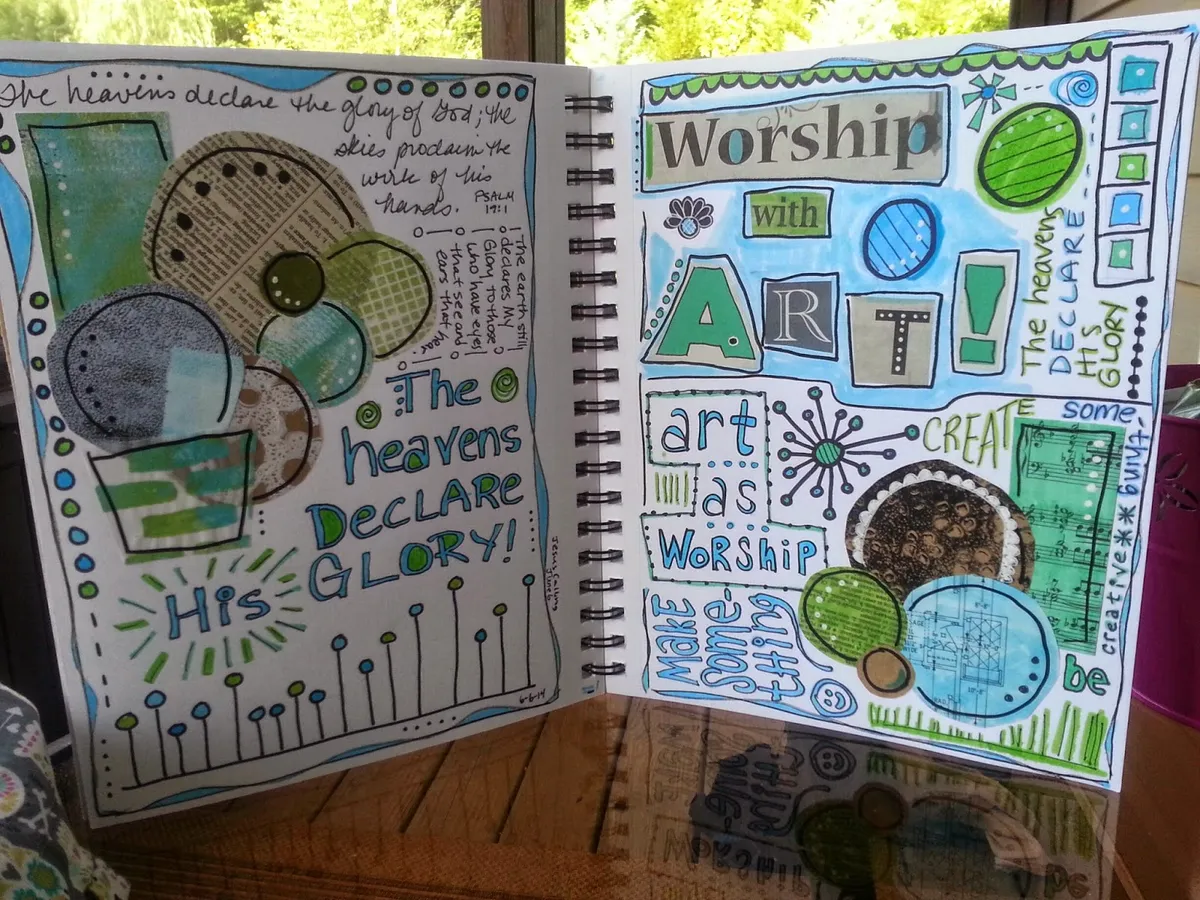 The heavens declare the glory of God; the
skies proclaim the
work of his
hands.
PSALM
19:1
The earth still
declares My
Glory to those
who have eyes
that see and
ears that hear.
The
heavens
DECLARE
GLORY!
His
Jesus Calling
June 6
6-6-14
Worship
with
ART!
The heavens
DECLARE
HIS
GLORY
art
as
WORSHIP
CREATE
some-
thing
creative
be
MAKE
Some-
thing